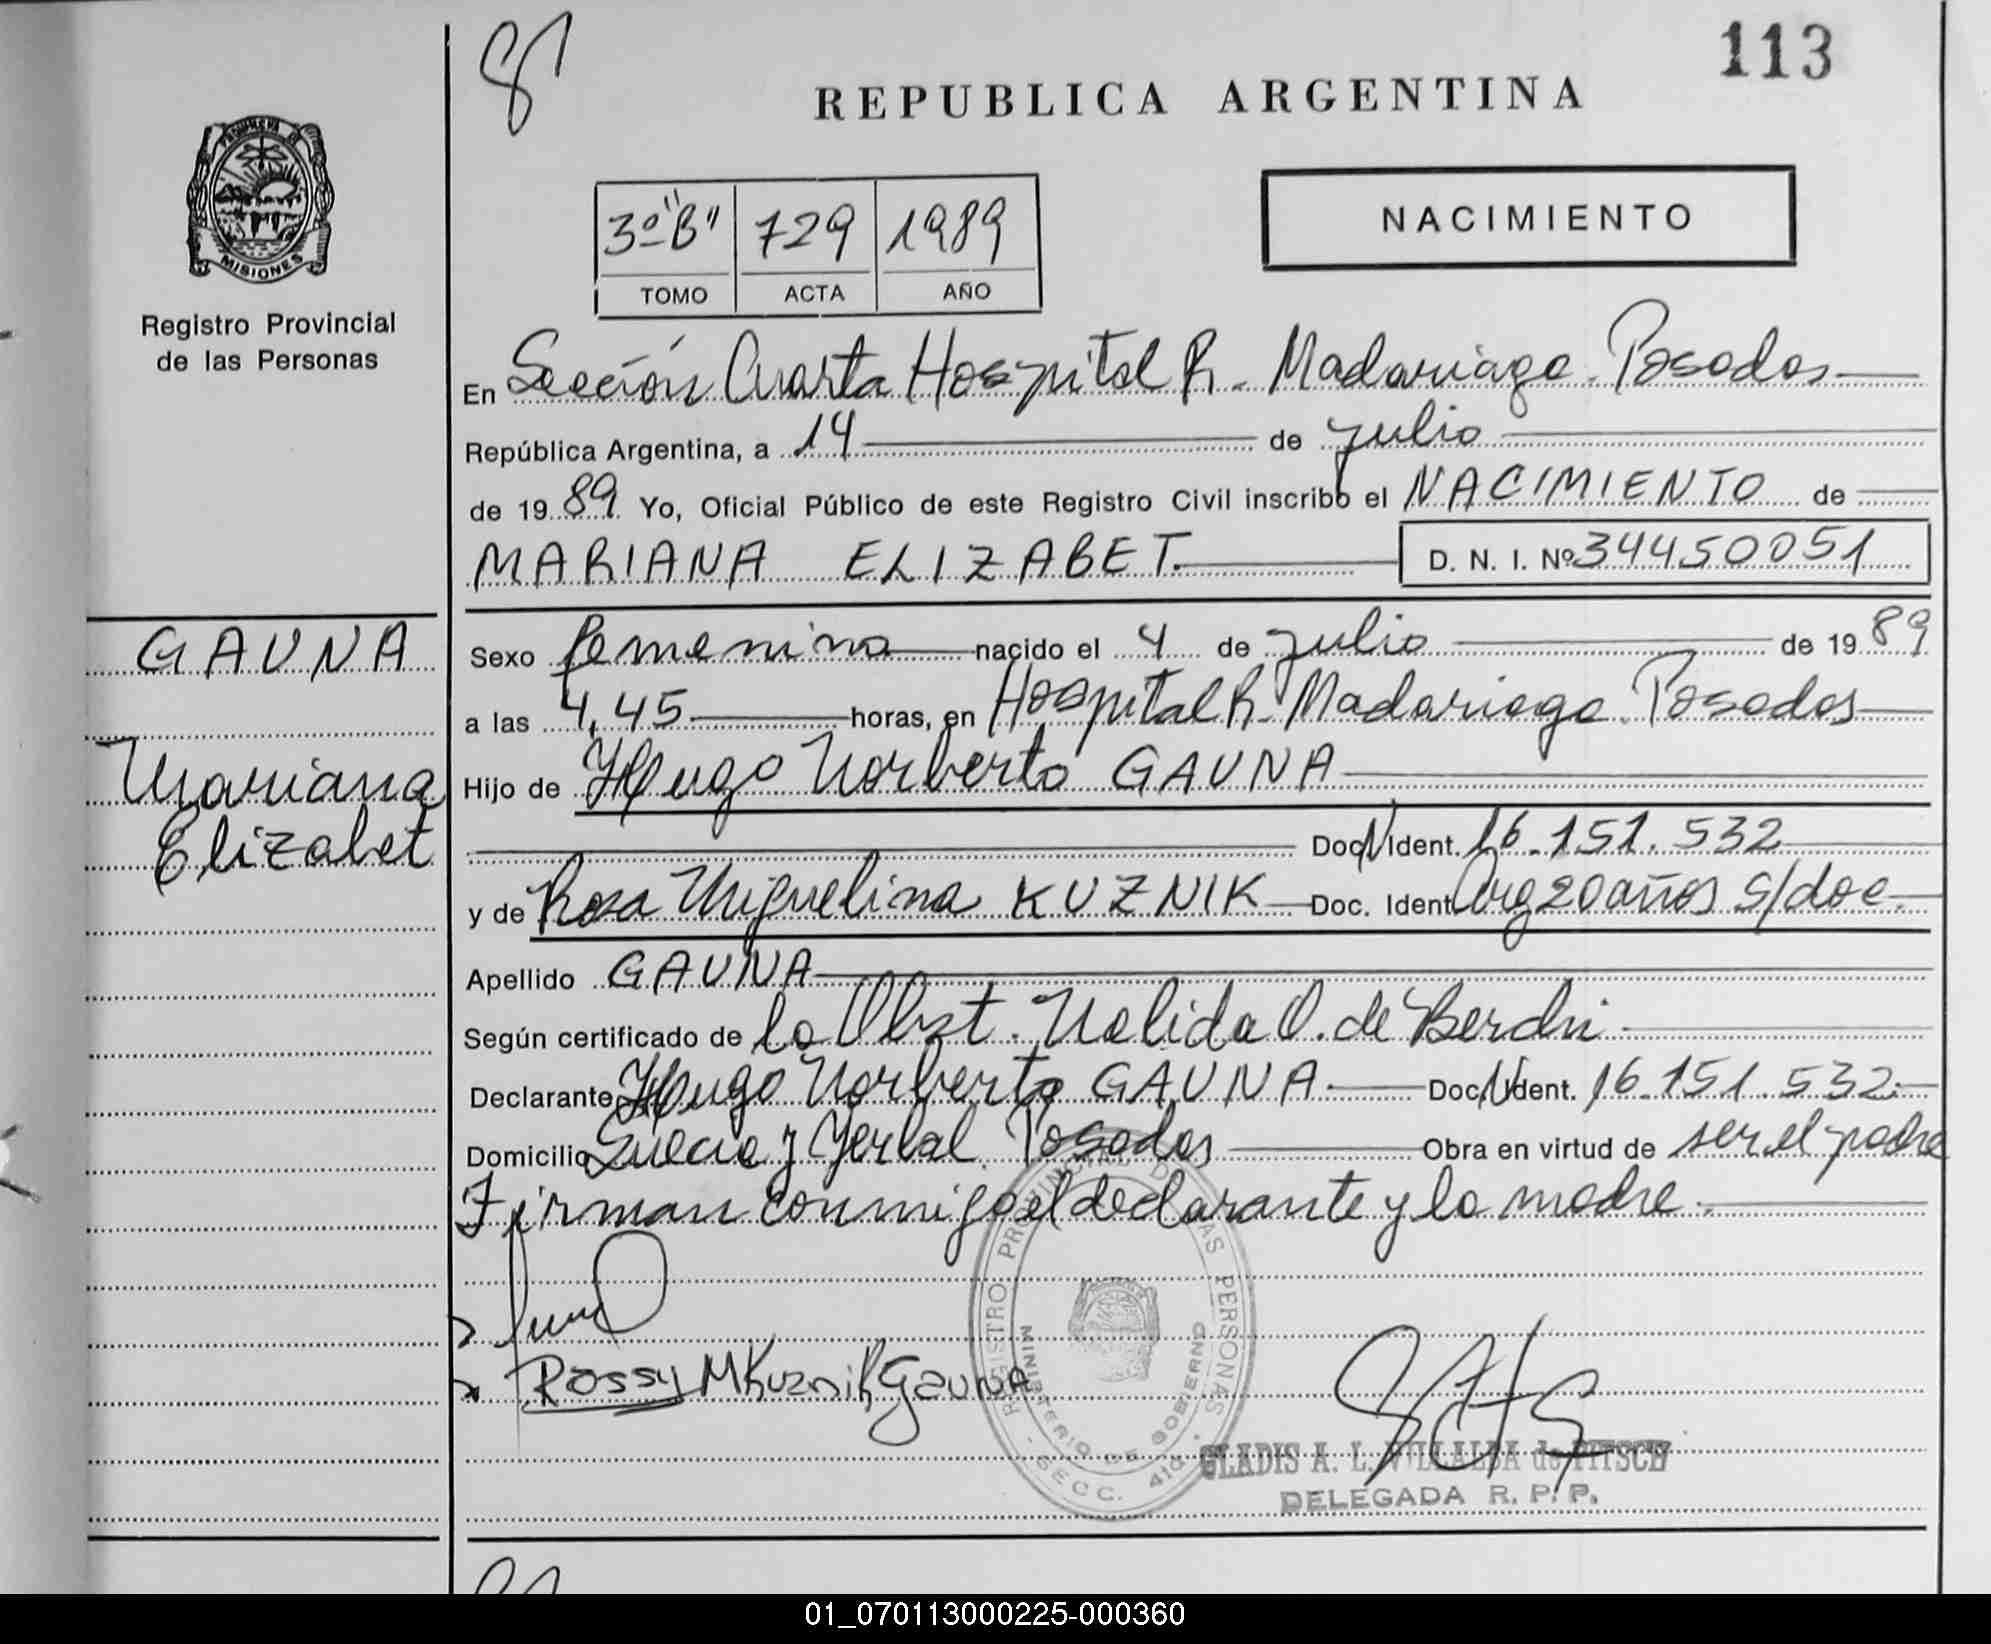 113
REPUBLICA ARGENTINA
PROVINCIA DE
MISIONES
Registro Provincial
de las Personas
NACIMIENTO
3º "B" 729 1989
TOMO ACTA AÑO
En Sección Cuarta Hospital R. Madariaga. Posadas
República Argentina, a 14 de julio
de 1989 Yo, Oficial Público de este Registro Civil inscribo el NACIMIENTO de
MARIANA ELIZABET. D. N. I. Nº 34450051
GAUNA
Mariana
Elizabet
Sexo femenino nacido el 4 de julio de 1989
a las 4,45 horas, en Hospital R. Madariaga. Posadas
Hijo de Hugo Norberto GAUNA
Doc N Ident. 16.151.532
y de Rosa Miguelina KUZNIK Doc. Ident. Arg 20 años s/doc.
Apellido GAUNA
Según certificado de la Obst. Nelida O. de Berdri
Declarante Hugo Norberto GAUNA Doc N Ident. 16.151.532
Domicilio Suecia y Yerbal. Posadas Obra en virtud de ser el padre
Firman conmigo el declarante y la madre.
Rossy M Kuznik Gauna
REGISTRO PROVINCIAL DE LAS PERSONAS
MINISTERIO DE GOBIERNO
SECC. 4ta
GLADIS A. L. VILLALBA de PITSCH
DELEGADA R. P. P.
01_070113000225-000360